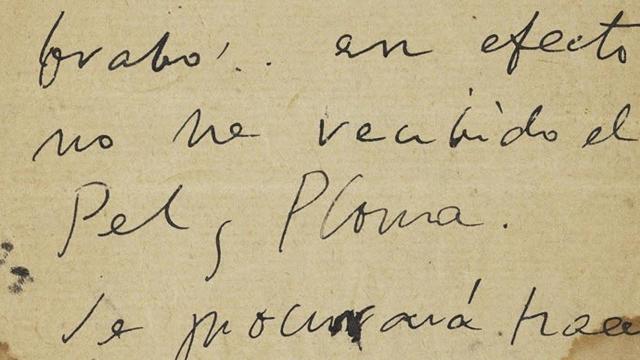 brabo'.. en efecto
no he recibido el
Pel y Ploma.
Se procurará